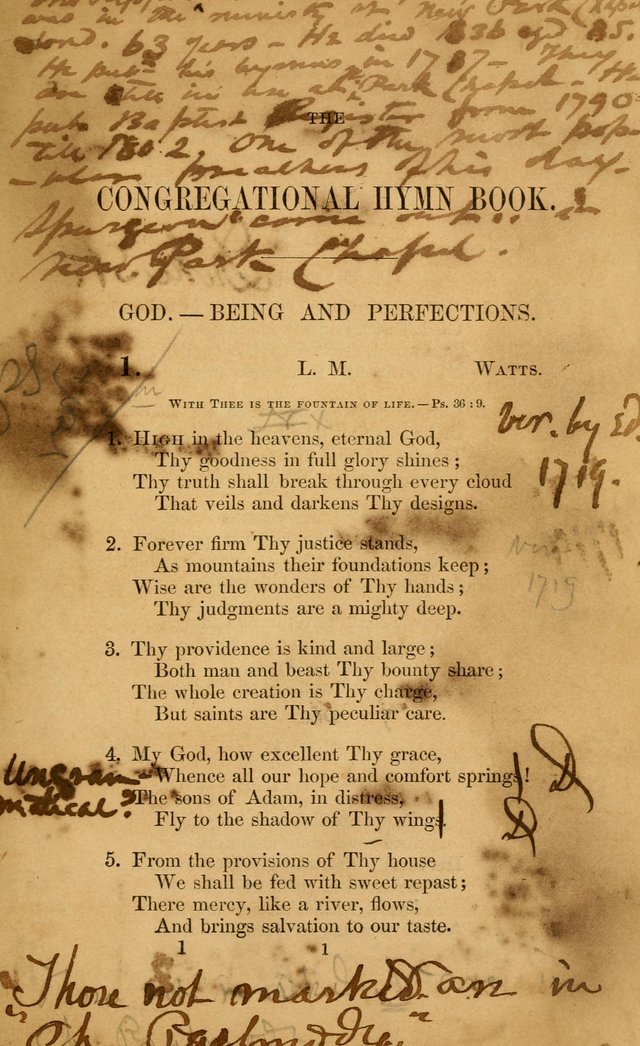 was in the ministry at New Park Chapel
63 years - He died 1836 aged 85.
He put his hymns in 1787 - They
are still in use at Park Chapel - He
THE
Baptist from 1790
till 1802, One of the most popu
-lar preachers of his day -
CONGREGATIONAL HYMN BOOK.
Spurgeon came out in
New Park Chapel.
GOD. — BEING AND PERFECTIONS.
1. L. M. WATTS.
WITH THEE IS THE FOUNTAIN OF LIFE. — Ps. 36 : 9.
ver. by Ed.
1719.
1. HIGH in the heavens, eternal God,
Thy goodness in full glory shines;
Thy truth shall break through every cloud
That veils and darkens Thy designs.
2. Forever firm Thy justice stands,
As mountains their foundations keep;
Wise are the wonders of Thy hands;
Thy judgments are a mighty deep.
1719
3. Thy providence is kind and large;
Both man and beast Thy bounty share;
The whole creation is Thy charge,
But saints are Thy peculiar care.
4. My God, how excellent Thy grace,
Whence all our hope and comfort springs!
The sons of Adam, in distress,
Fly to the shadow of Thy wings.
Ungram-
matical?
D
D
5. From the provisions of Thy house
We shall be fed with sweet repast;
There mercy, like a river, flows,
And brings salvation to our taste.
1 1
Those not marked D are in
"Ch. Psalmodia"